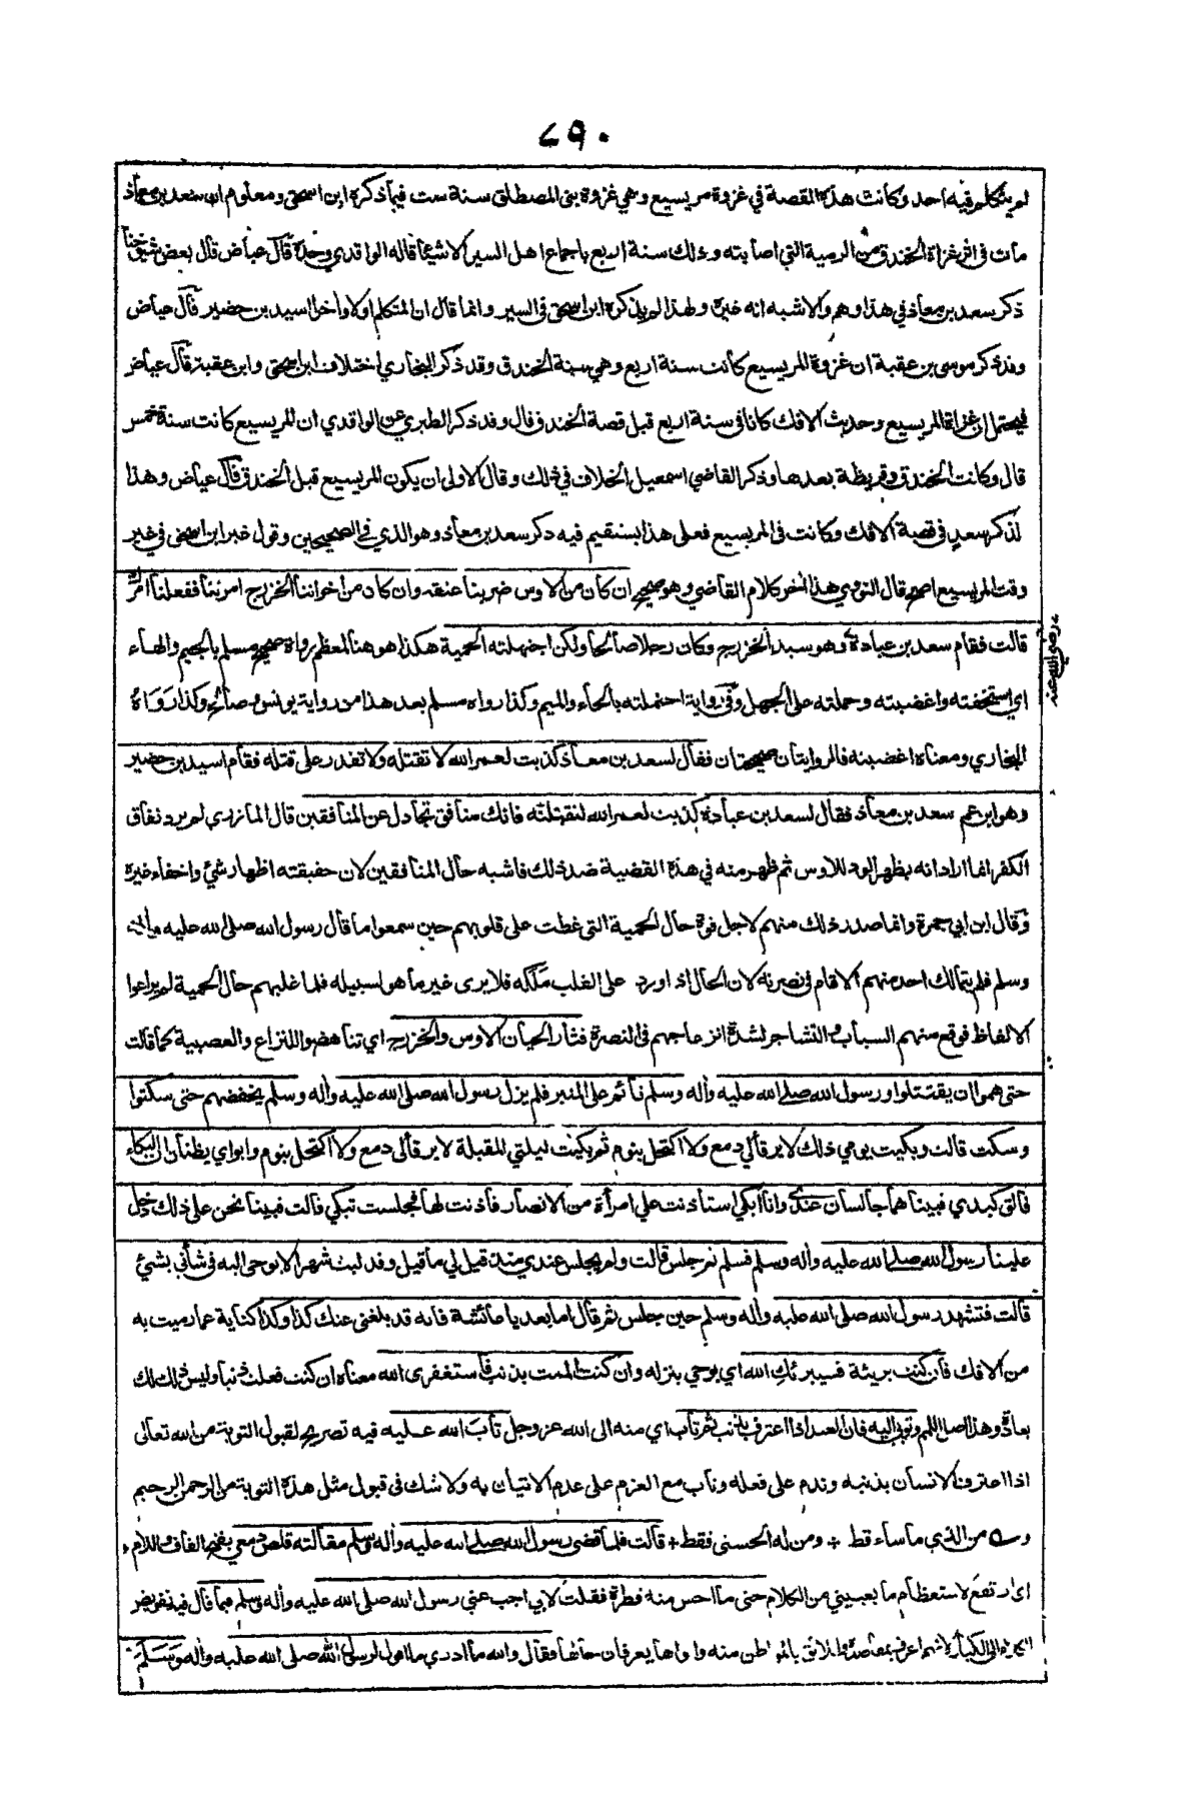 ٧٩٠
لم يتكلم فيه احد وكانت هذه القصة في غزوة مريسيع وهي غزوة بنى المصطلق سنة ست فيما ذكره ابن اسحق ومعلوم ان سعد بن معاذ
مات في اثر غزاة الخندق من الرمية التي اصابته وذلك سنة اربع باجماع اهل السير الا شيئا قاله الواقدي وحده قال عياض قال بعض شيوخنا
ذكر سعد بن معاذ في هذا وهم والاشبه انه غيره ولهذا لم يذكره ابن اسحق في السير وانما قال ان المتكلم اولا واخرا اسيد بن حضير قال عياض
وقد ذكر موسى بن عقبة ان غزوة المريسيع كانت سنة اربع وهي سنة الخندق وقد ذكر البخاري اختلاف ابن اسحق وابن عقبة قال عياض
فيحتمل ان غزاة المريسيع وحديث الافك كانا فى سنة اربع قبل قصة الخندق قال وقد ذكر الطبري عن الواقدي ان المريسيع كانت سنة خمس
قال وكانت الخندق وقريظة بعدها وذكر القاضي اسمعيل الخلاف في ذلك وقال الاولى ان يكون المريسيع قبل الخندق قال عياض وهذا
لذكر سعد في قصة الافك وكانت فى المريسيع فعلى هذا يستقيم فيه ذكر سعد بن معاذ وهو الذي في الصحيحين وقول غير ابن اسحق في غير
وقت المريسيع اصح قال النووي هذا اخر كلام القاضي وهو صحيح ان كان من الاوس ضربنا عنقه وان كان من اخواننا الخزرج امرتنا ففعلنا امرك
قالت فقام سعد بن عبادة وهو سيد الخزرج وكان رجلا صالحا ولكن اجتهلته الحمية هكذا هو هنا لمعظم رواة صحيح مسلم بالجيم والهاء
رضي الله عنه
اي استخفته واغضبته وحملته على الجهل وفي رواية احتملته بالحاء والميم وكذا رواه مسلم بعد هذا من رواية يونس وصالح وكذا رواه
البخاري ومعناه اغضبته فالروايتان صحيحتان فقال لسعد بن معاذ كذبت لعمر الله لا تقتله ولا تقدر على قتله فقام اسيد بن حضير
وهو ابن عم سعد بن معاذ فقال لسعد بن عبادة كذبت لعمر الله لنقتلنه فانك منافق تجادل عن المنافقين قال المازري لم يرد نفاق
الكفر انما اراد انه يظهر الود للاوس ثم ظهر منه في هذه القضية ضد ذلك فاشبه حال المنافقين لان حقيقته اظهار شئ واخفاء غيره
وقال ابن ابي جمرة وانما صدر ذلك منهم لاجل قوة حال الحمية التى غطت على قلوبهم حين سمعوا ما قال رسول الله صلى الله عليه واله
وسلم فلم يتمالك احد منهم الا قام في نصرته لان الحال اذا ورد على القلب ملكه فلا يرى غير ما هو لسبيله فلما غلبهم حال الحمية لم يراعوا
الالفاظ فوقع منهم السباب والتشاجر لشدة انزعاجهم فى النصرة فثار الحيان الاوس والخزرج اي تناهضوا للنزاع والعصبية كما قالت
حتى هموا ان يقتتلوا ورسول الله صلى الله عليه واله وسلم قائم على المنبر فلم يزل رسول الله صلى الله عليه واله وسلم يخفضهم حتى سكتوا
وسكت قالت وبكيت يومي ذلك لا يرقألي دمع ولا اكتحل بنوم ثم بكيت ليلتي المقبلة لا يرقألى دمع ولا اكتحل بنوم وابواي يظنان ان البكاء
فالق كبدي فبينا هما جالسان عندي وانا ابكي استاذنت علي امرأة من الانصار فأذنت لها فجلست تبكي قالت فبينا نحن على ذلك دخل
علينا رسول الله صلى الله عليه واله وسلم فسلم ثم جلس قالت ولم يجلس عندي منذ قيل لي ما قيل وقد لبث شهرا لا يوحى اليه فى شأني بشئ
قالت فتشهد رسول الله صلى الله عليه واله وسلم حين جلس ثم قال اما بعد يا عائشة فانه قد بلغني عنك كذا وكذا كناية عما رميت به
من الافك فان كنت بريئة فسيبرئك الله اي بوحي ينزله وان كنت الممت بذنب فاستغفرى الله معناه ان كنت فعلت ذنبا وليس ذلك لك
بعادة وهذا اصل اللمم وتوبي اليه فان العبد اذا اعترف بذنب ثم تاب اي منه الى الله عز وجل تاب الله عليه فيه تصريح لقبول التوبة من الله تعالى
اذا اعترف الانسان بذنبه وندم على فعله وتاب مع العزم على عدم الاتيان به ولا شك فى قبول مثل هذه التوبة من الرحمن الرحيم
من الذي ما ساء قط ومن له الحسنى فقط قالت فلما قضى رسول الله صلى الله عليه واله وسلم مقالته قلص دمعي بفتح القاف واللام
اى ارتفع لاستعظام ما يعييني من الكلام حتى ما احس منه قطرة فقلت لابي اجب عني رسول الله صلى الله عليه واله وسلم فيما قال فيه تفويض
الى الكبار لانهم اعرف بمقاصده وابواها يعرفان حالها فقال والله ما ادري ما اقول لرسول الله صلى الله عليه واله وسلم